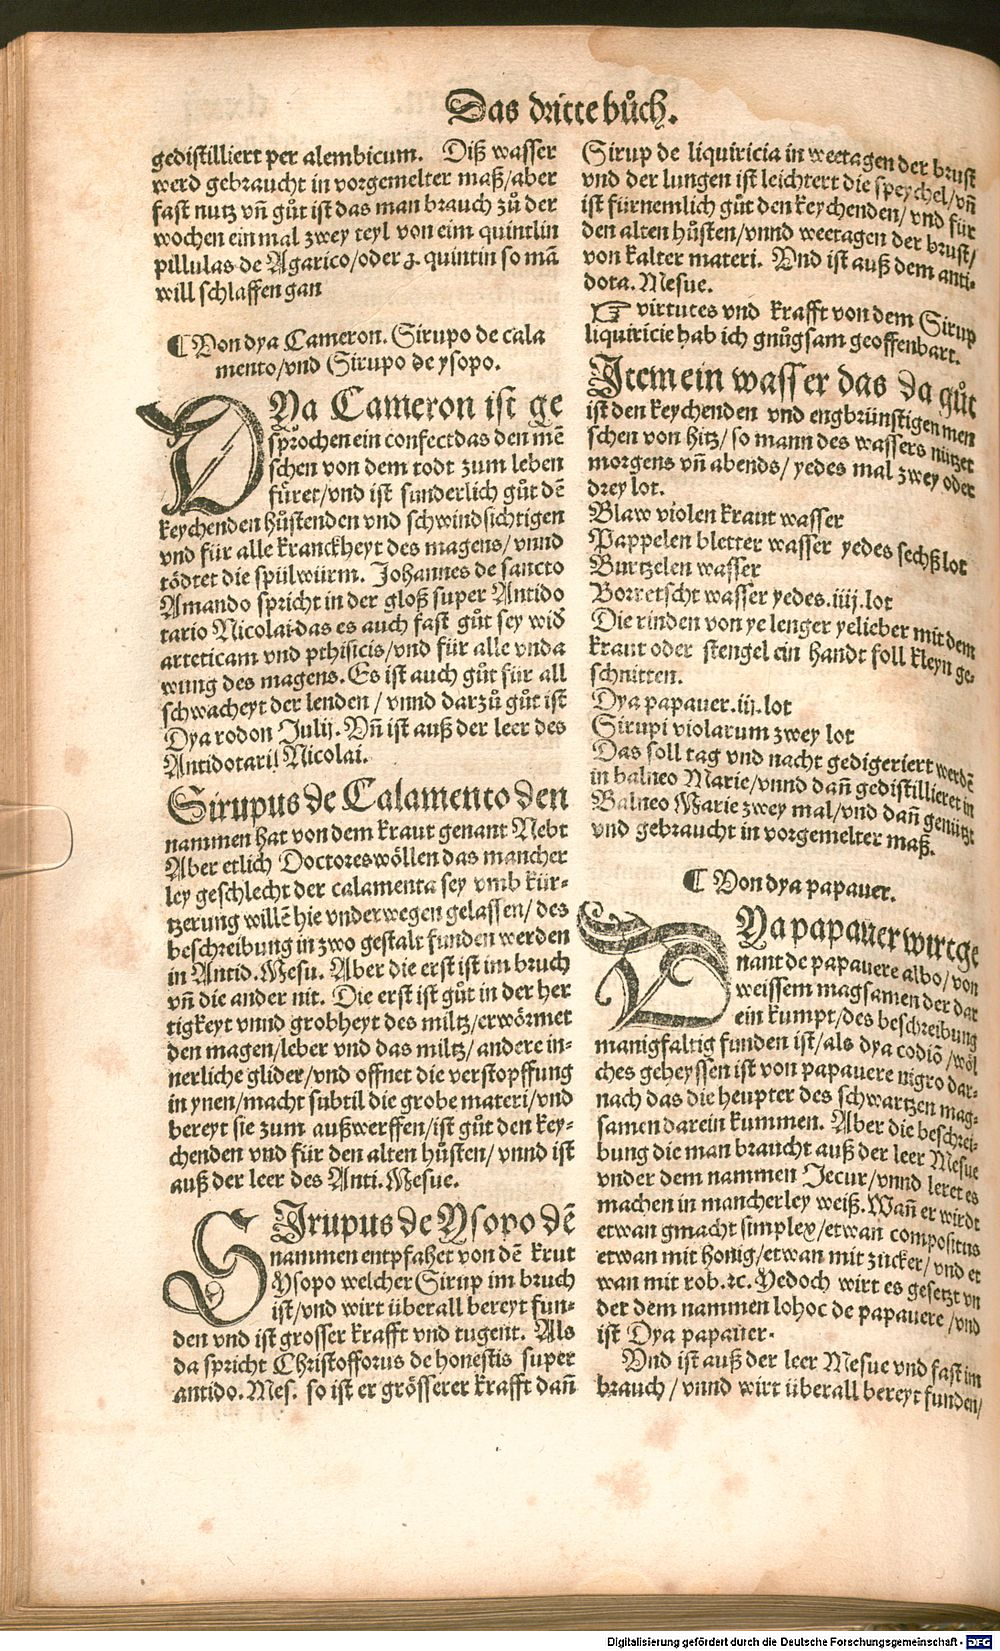 Das dritte bůch.
gedistilliert per alembicum. Diß wasser
werd gebraucht in vorgemelter maß/aber
fast nutz vñ gůt ist das man brauch zů der
wochen ein mal zwey teyl von eim quintlin
pillulas de Agarico/oder ʒ. quintin so mã
will schlaffen gan
¶ Von dya Cameron. Sirupo de cala
mento/vnd Sirupo de ysopo.
DYa Cameron ist ge
sprochen ein confect das den mẽ
schen von dem todt zum leben
fůret/vnd ist sunderlich gůt dẽ
keychenden hůstenden vnd schwindsichtigen
vnd für alle kranckheyt des magens/vnnd
tödtet die spülwürm. Johannes de sancto
Amando spricht in der gloß super Antido
tario Nicolai das es auch fast gůt sey wid̃
arteticam vnd pthisicis/vnd für alle vnda
wung des magens. Es ist auch gůt für all
schwacheyt der lenden/vnnd darzů gůt ist
Dya rodon Julij. Vñ ist auß der leer des
Antidotarij Nicolai.
Sirupus de Calamento den
nammen hat von dem kraut genant Nebt
Aber etlich Doctores wöllen das mancher
ley geschlecht der calamenta sey vmb kür-
tzerung willẽ hie vnderwegen gelassen/des
beschreibung in zwo gestalt funden werden
in Antid. Mesu. Aber die erst ist im bruch
vñ die ander nit. Die erst ist gůt in der her
tigkeyt vnnd grobheyt des miltz/erwörmet
den magen/leber vnd das miltz/andere in-
nerliche glider/vnd offnet die verstopffung
in ynen/macht subtil die grobe materi/vnd
bereyt sie zum außwerffen/ist gůt den key-
chenden vnd für den alten hůsten/vnnd ist
auß der leer des Anti. Mesue.
SIrupus de Ysopo dẽ
nammen entpfahet von dẽ krut
Ysopo welcher Sirup im bruch
ist/vnd wirt überall bereyt fun-
den vnd ist grosser krafft vnd tugent. Als
da spricht Christofforus de honestis super
antido. Mes. so ist er grösserer krafft dañ
Sirup de liquiricia in weetagen der brust
vnd der lungen ist leichtert die speychel/vñ
ist fürnemlich gůt den keychenden/vnd für
den alten hůsten/vnnd weetagen der brust/
von kalter materi. Vnd ist auß dem anti-
dota. Mesue.
☞ virtutes vnd krafft von dem Sirup
liquiricie hab ich gnůgsam geoffenbart.
Item ein wasser das da gůt
ist den keychenden vnd engbrünstigen men
schen von hitz/so mann des wassers nützet
morgens vñ abends/yedes mal zwey oder
drey lot.
Blaw violen kraut wasser
Pappelen bletter wasser yedes sechß lot
Burtzelen wasser
Borretscht wasser yedes.iiij.lot
Die rinden von ye lenger yelieber mit dem
kraut oder stengel ein handt foll kleyn ge-
schnitten.
Dya papauer.iij.lot
Sirupi violarum zwey lot
Das soll tag vnd nacht gedigeriert werdẽ
in balneo Marie/vnnd dañ gedistillieret in
Balneo Marie zwey mal/vnd dañ genützt
vnd gebraucht in vorgemelter maß.
¶ Von dya papauer.
DYa papauer wirt ge
nant de papauere albo/von
weissem magsamen der dar
ein kumpt/des beschreibung
manigfaltig funden ist/als dya codiõ/wöl
ches geheyssen ist von papauere nigro dar-
nach das die heupter des schwartzen mag-
samen darein kummen. Aber die beschrei-
bung die man braucht auß der leer Mesue
vnder dem nammen Jecur/vnnd leret es
machen in mancherley weiß. Wañ er wirdt
etwan gmacht simplex/etwan compositus
etwan mit honig/etwan mit zucker/vnd et
wan mit rob.ꝛc. Yedoch wirt es gesetzt vn
der dem nammen lohoc de papauere/vnd
ist Dya papauer.
Vnd ist auß der leer Mesue vnd fast im
brauch/vnnd wirt überall bereyt funden/
Digitalisierung gefördert durch die Deutsche Forschungsgemeinschaft - DFG